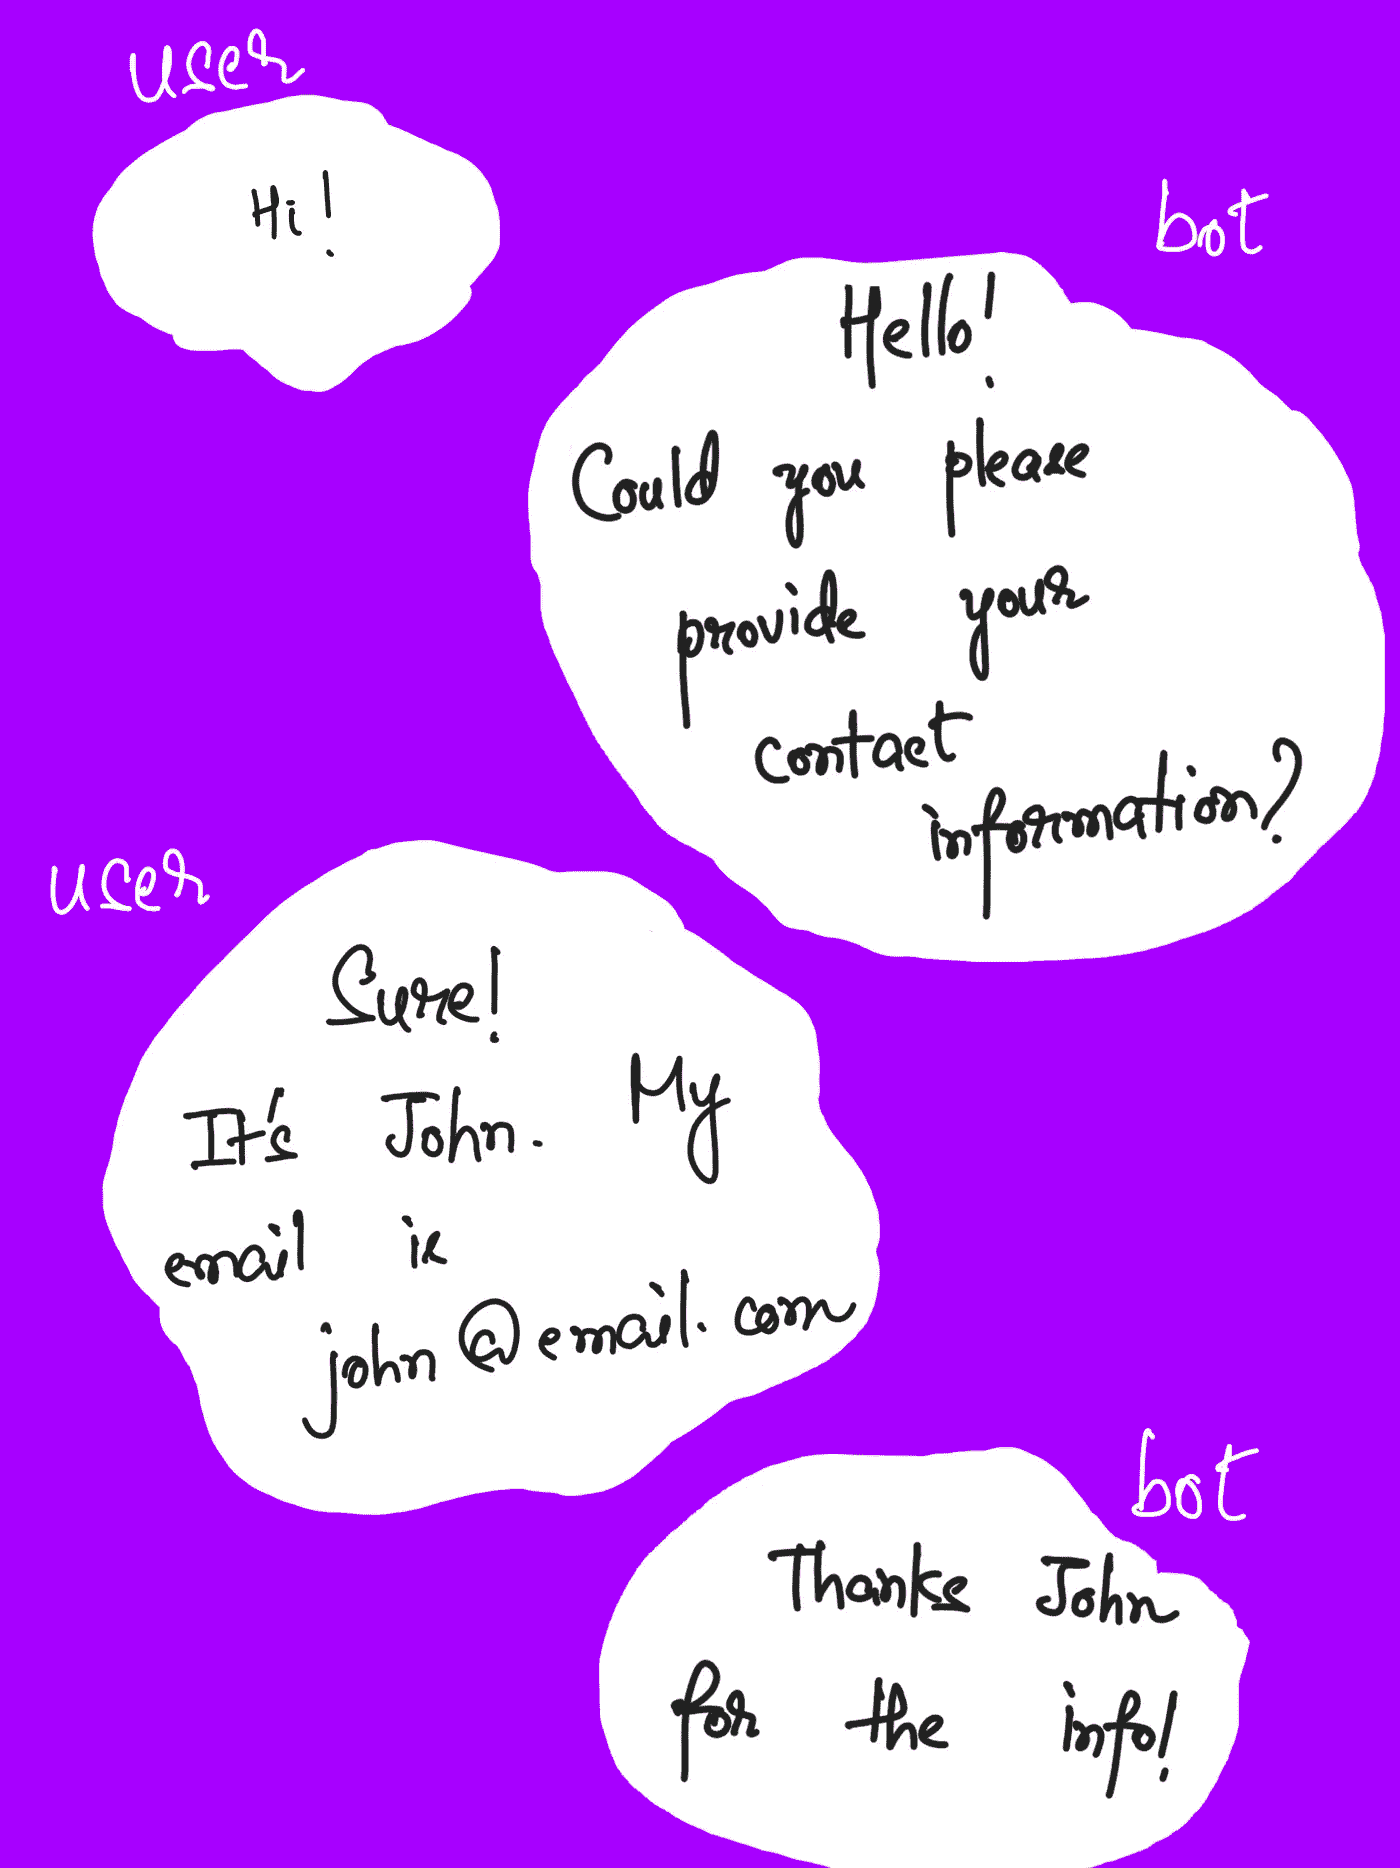 user
Hi!
bot
Hello!
Could you please
provide your
contact
information?
user
Sure!
It's John. My
email is
john@email.com
bot
Thanks John
for the info!